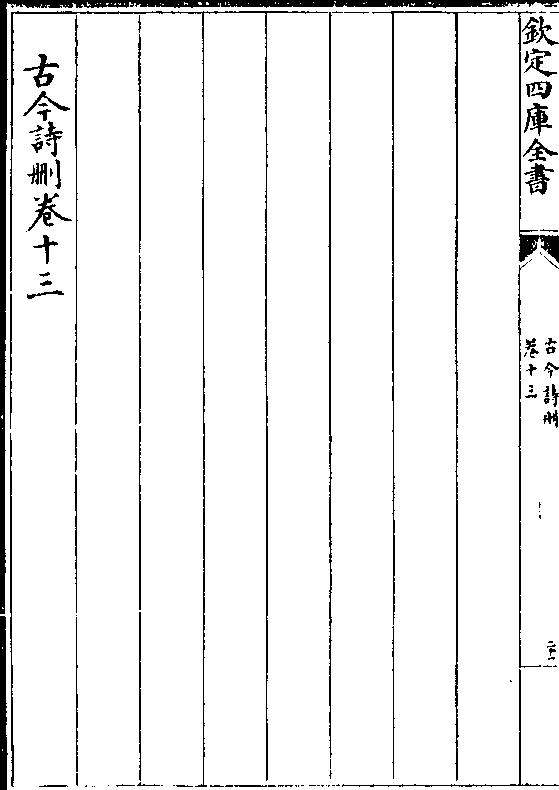 欽定四庫全書
古今詩刪
卷十三
古今詩刪卷十三